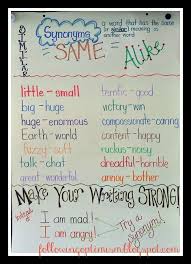 SIMILAR
Synonyms
a word that has the same
or similar meaning as
another word
= SAME = Alike
little - small
big - huge
huge - enormous
Earth - world
fuzzy - soft
talk - chat
great - wonderful
terrific - good
victory - win
compassionate - caring
content - happy
ruckus - noisy
dreadful - horrible
annoy - bother
Make Your Writing STRONG!
Instead of
I am mad!
I am angry!
Try a
synonym!
followingoptimism.blogspot.com